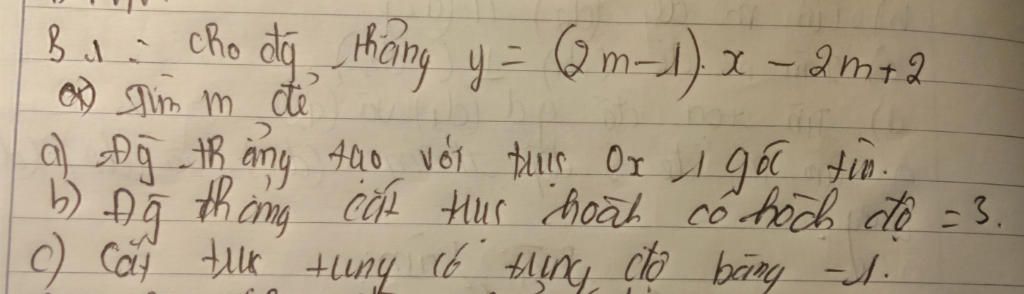 B.1 : cho đg̃ thẳng y = (2m-1).x - 2m+2
Tìm m để
a) Đg̃ thẳng tạo với trục Ox 1 góc tù.
b) Đg̃ thẳng cắt trục hoành có hoành độ = 3.
c) Cắt trục tung có tung độ bằng -1.